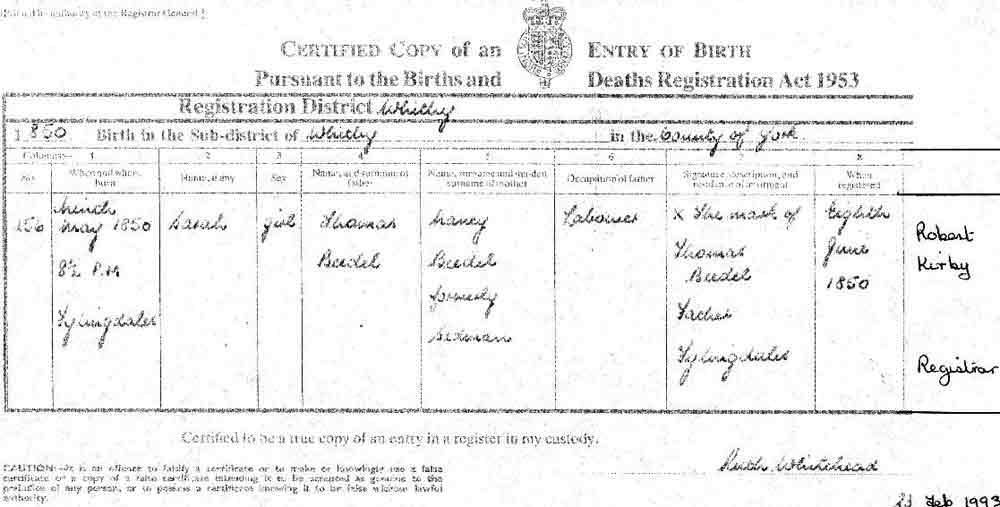 CERTIFIED COPY of an ENTRY OF BIRTH
Pursuant to the Births and Deaths Registration Act 1953
Registration District Whitby
1850 Birth in the Sub-district of Whitby in the County of York
Columns:- 1 2 3 4 5 6 7 8
No. When and where born Name, if any Sex Name, and surname of father Name, surname and maiden surname of mother Occupation of father Signature, description, and residence of informant When registered
156 May 1850 Sarah girl Thomas Nancy Labourer X The mark of Eighth
Robert
8½ P.M Beedel Beedel Thomas June
Kirby
formerly Beedel 1850
Fylingdales Bedman Father
Fylingdales Registrar
Certified to be a true copy of an entry in a register in my custody.
Ruth Whitehead
CAUTION:-It is an offence to falsify a certificate or to make or knowingly use a false
certificate or a copy of a false certificate intending it to be accepted as genuine to the
prejudice of any person, or to possess a certificate knowing it to be false without lawful
authority.
Feb 1993